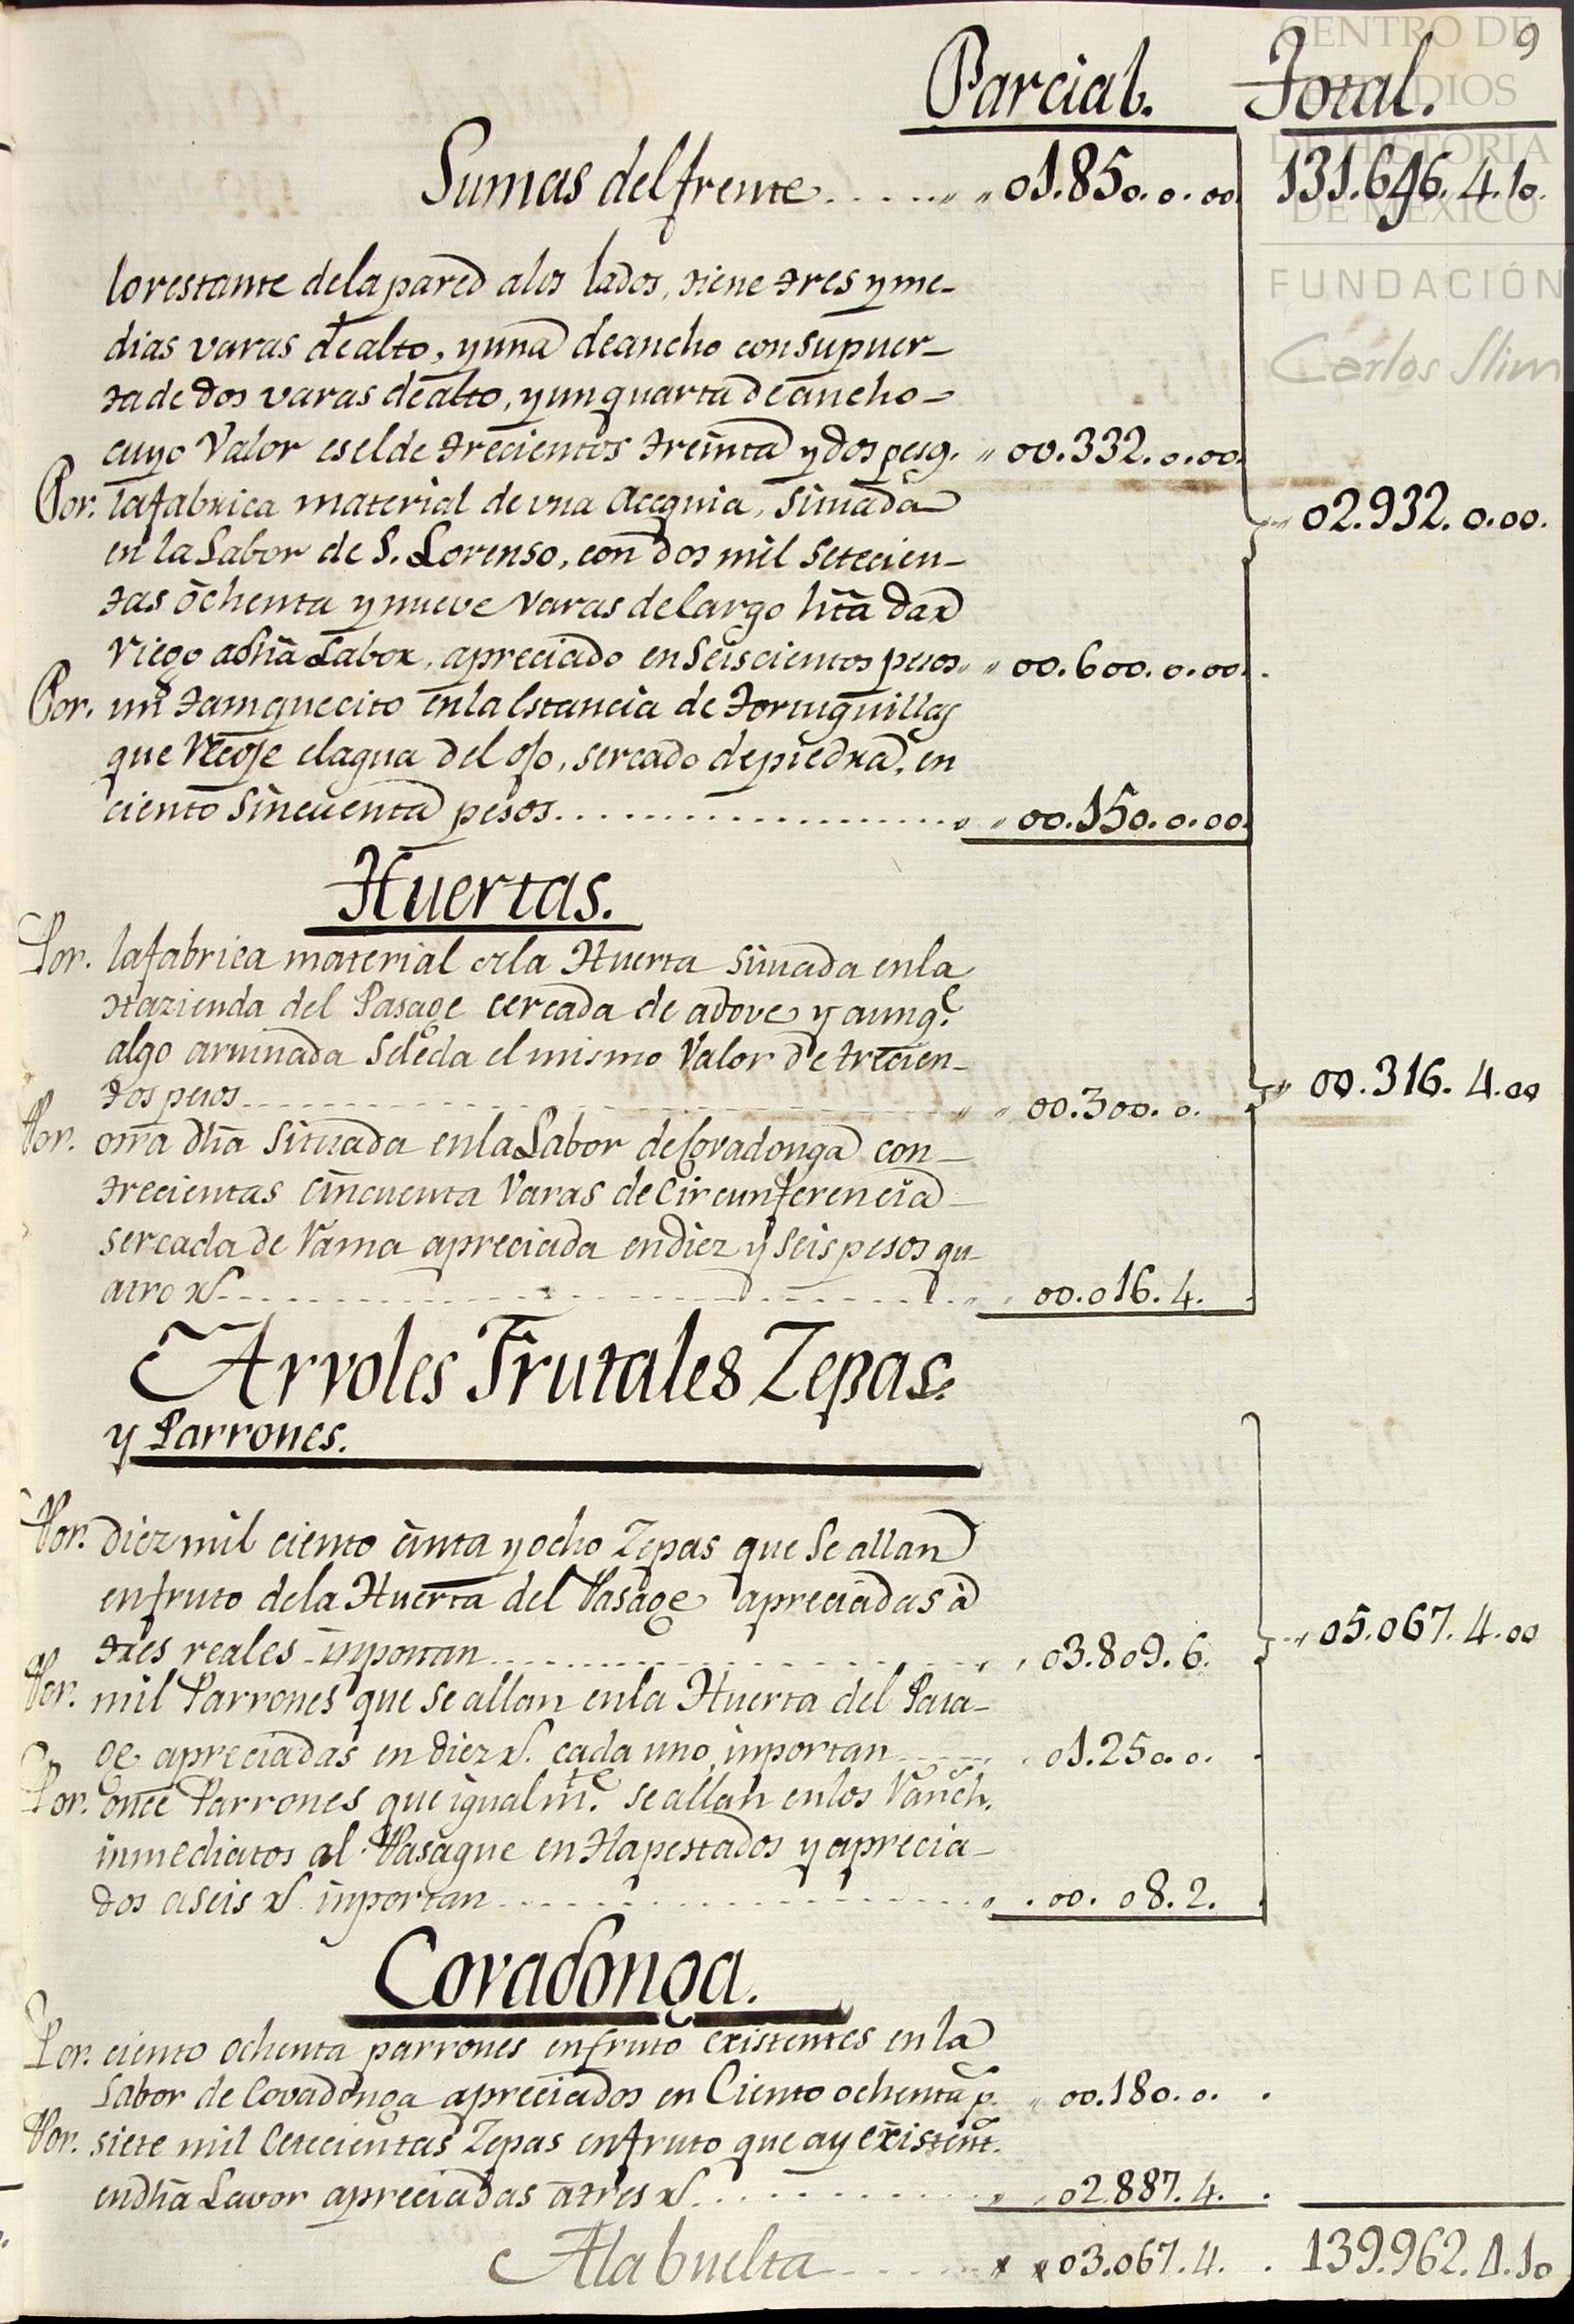 9
Parcial. Total.
Sumas del frente ..... 01.850.0.00. 131.646.4.10.
lo restante de la pared a los lados, tiene tres y me-
dias varas de alto, y una de ancho con su puer-
ta de dos varas de alto, y un quarta de ancho -
cuyo Valor es el de trecientos treinta y dos pesos. 00.332.0.00.
Por. la fabrica material de una Acequia, situada
en la Labor de S. Lorenso, con dos mil setecien-
tas ochenta y nueve varas de largo hta dar
riego a dha Labor, apreciado en Seiscientos pesos. 00.600.0.00.
02.932.0.00.
Por. un tamquecito en la Estancia de Tortuguillas
que Recoje el agua del ojo, sercado de piedra, en
ciento sincuenta pesos.................... 00.150.0.00.
Huertas.
Por. la fabrica material de la Huerta situada en la
Hazienda del Pasage cercada de adove y aunqe.
algo arruinada se le da el mismo Valor de trecien-
tos pesos.................... 00.300.0.
00.316.4.00
Por. otra dha situada en la Labor de Covadonga con -
trecientas cincuenta Varas de Circunferencia -
sercada de Rama apreciada en diez y seis pesos qu-
atro rs.................... 00.016.4.
Arvoles Frutales Zepas.
y Parrones.
Por. diez mil ciento cinta y ocho Zepas que se allan
en fruto de la Huerta del Pasage apreciadas à
tres reales inportan.................... 03.809.6.
05.067.4.00
Por. mil Parrones que se allan en la Huerta del Pasa-
ge apreciadas en diez rs. cada uno, inportan..... 01.250.0.
Por. once Parrones que igualmte. se allan en los Ranch.
inmediatos al Pasague enHapestados y aprecia-
dos a seis rs. inportan.................... 00.08.2.
Covadonga.
Por. ciento ochenta parrones en fruto existentes en la
Labor de Covadonga apreciados en Ciento ochenta ps. 00.180.0.
Por. siete mil Cetecientas Zepas en fruto que ay existent.
en dha Lavor apreciadas a tres rs............. 02.887.4.
A la buelta ....... 03.067.4. 139.962.4.10
CENTRO DE
ESTUDIOS
DE HISTORIA
DE MÉXICO
FUNDACIÓN
Carlos Slim